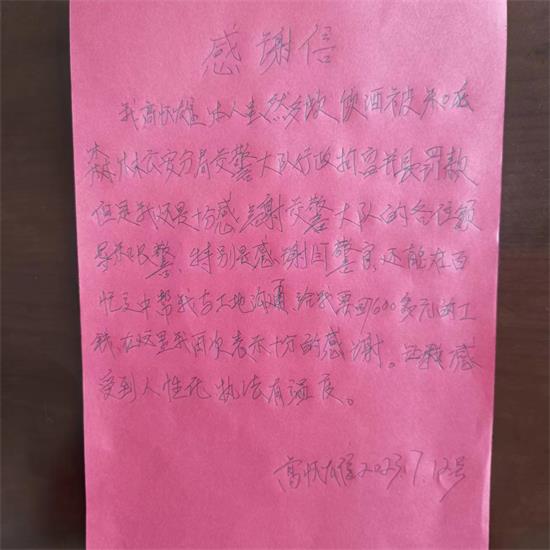 感谢信
我高怀 本人虽然多次饮酒被
森林公安分局交警大队行政拘 并 罚款
但是我还是十分感谢交警大队的各位领
导和民警,特别是感谢 警官还能在百
忙之中帮我与工地沟通给我要回 600多元的工
钱,在这里我再次表示十分的感谢。 感
受到人性化执法有温度。
高怀 2023.7.12号